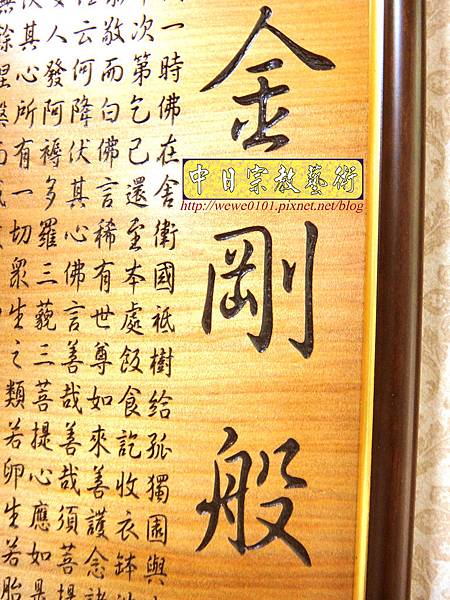 金剛般
中日宗教藝術
http://wewe0101.pixnet.net/blog
一時佛在舍衛國祇樹給孤獨園與
次第乞已還至本處飯食訖收衣鉢
敬而白佛言稀有世尊如來善護念諸
云何降伏其心佛言善哉善哉須菩提
人發阿褥多羅三藐三菩提心應如是
其心所有一切眾生之類若卵生若胎
餘涅槃而